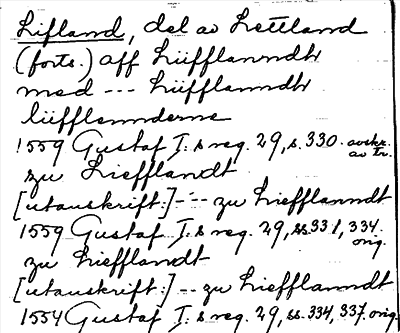 Lifland, del av Lettland
(forts.) aff Lüfflanndtr
med --- Lüfflanndtr
lüfflenndernе
1559 Gustaf I:s reg. 29, s. 330. avskr. av tr.
zu Liefflandt
[utanskrift:] --- zu Liefflanndt
1559 Gustaf I:s reg. 29, ss. 331, 334. orig.
zu Liefflandt
[utanskrift:] -- zu Liefflanndt
1554 Gustaf I:s reg. 29, ss. 334, 337. orig.